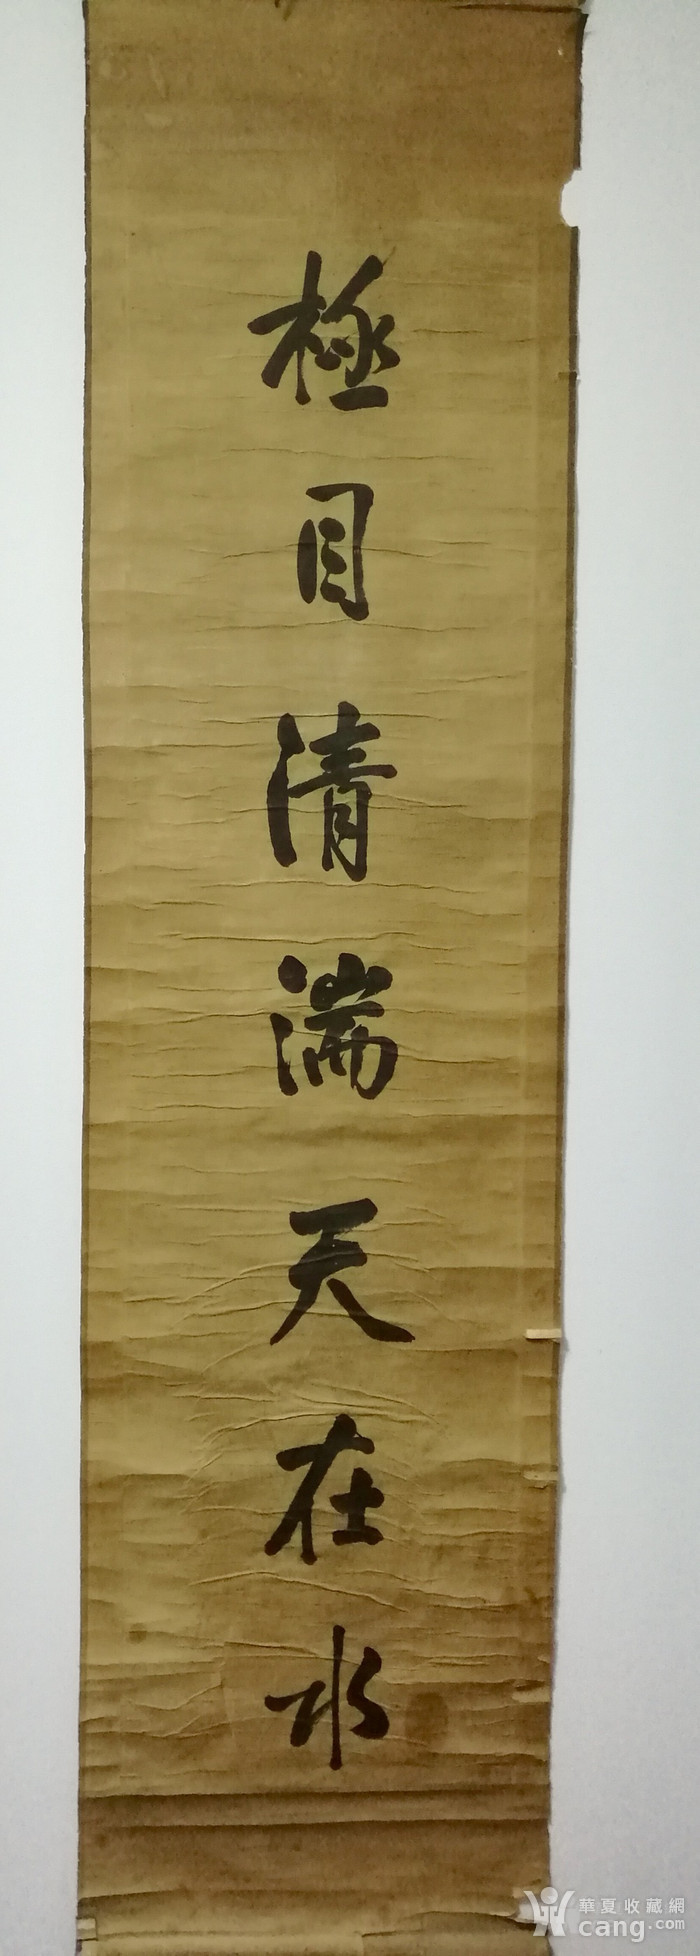 極目清湍天在水
華夏收藏網
cang.com